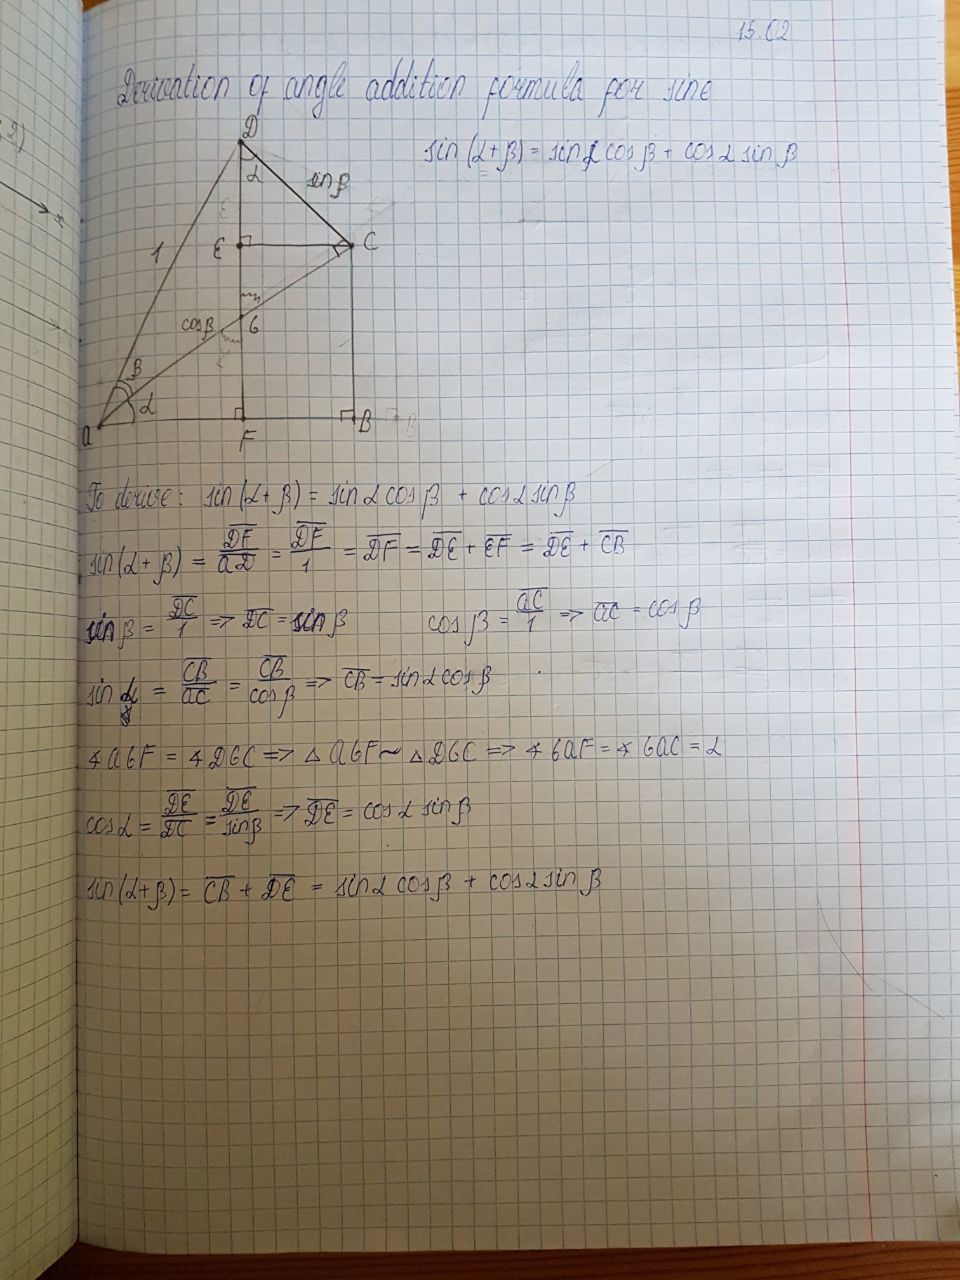 15.02
Derivation of angle addition formula for sine
sin(α+β) = sinα cosβ + cosα sinβ
D
α
sinβ
1
E
C
cosβ
G
β
α
A
F
B
To derive: sin(α+β) = sinα cosβ + cosα sinβ
sin(α+β) = DF/AD = DF/1 = DF = DE + EF = DE + CB
sinβ = DC/1 => DC = sinβ cosβ = AC/1 => AC = cosβ
sinα = CB/AC = CB/cosβ => CB = sinα cosβ
∢AGF = ∢DGC => △AGF ~ △DGC => ∢GAF = ∢GAC = α
cosα = DE/DC = DE/sinβ => DE = cosα sinβ
sin(α+β) = CB + DE = sinα cosβ + cosα sinβ